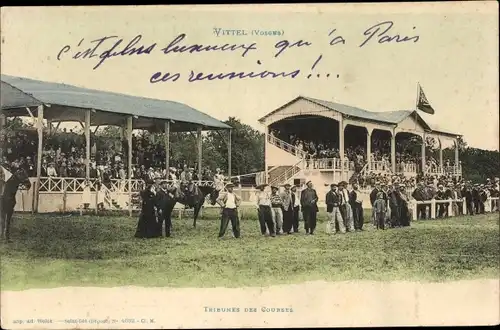 VITTEL (VOSGES)
c'est plus luxueux qu'à Paris
ces réunions !....
TRIBUNES DES COURSES